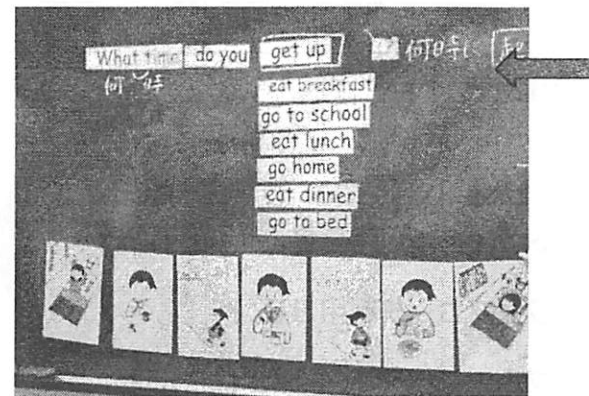 What time do you get up 何時に
何時
eat breakfast
go to school
eat lunch
go home
eat dinner
go to bed